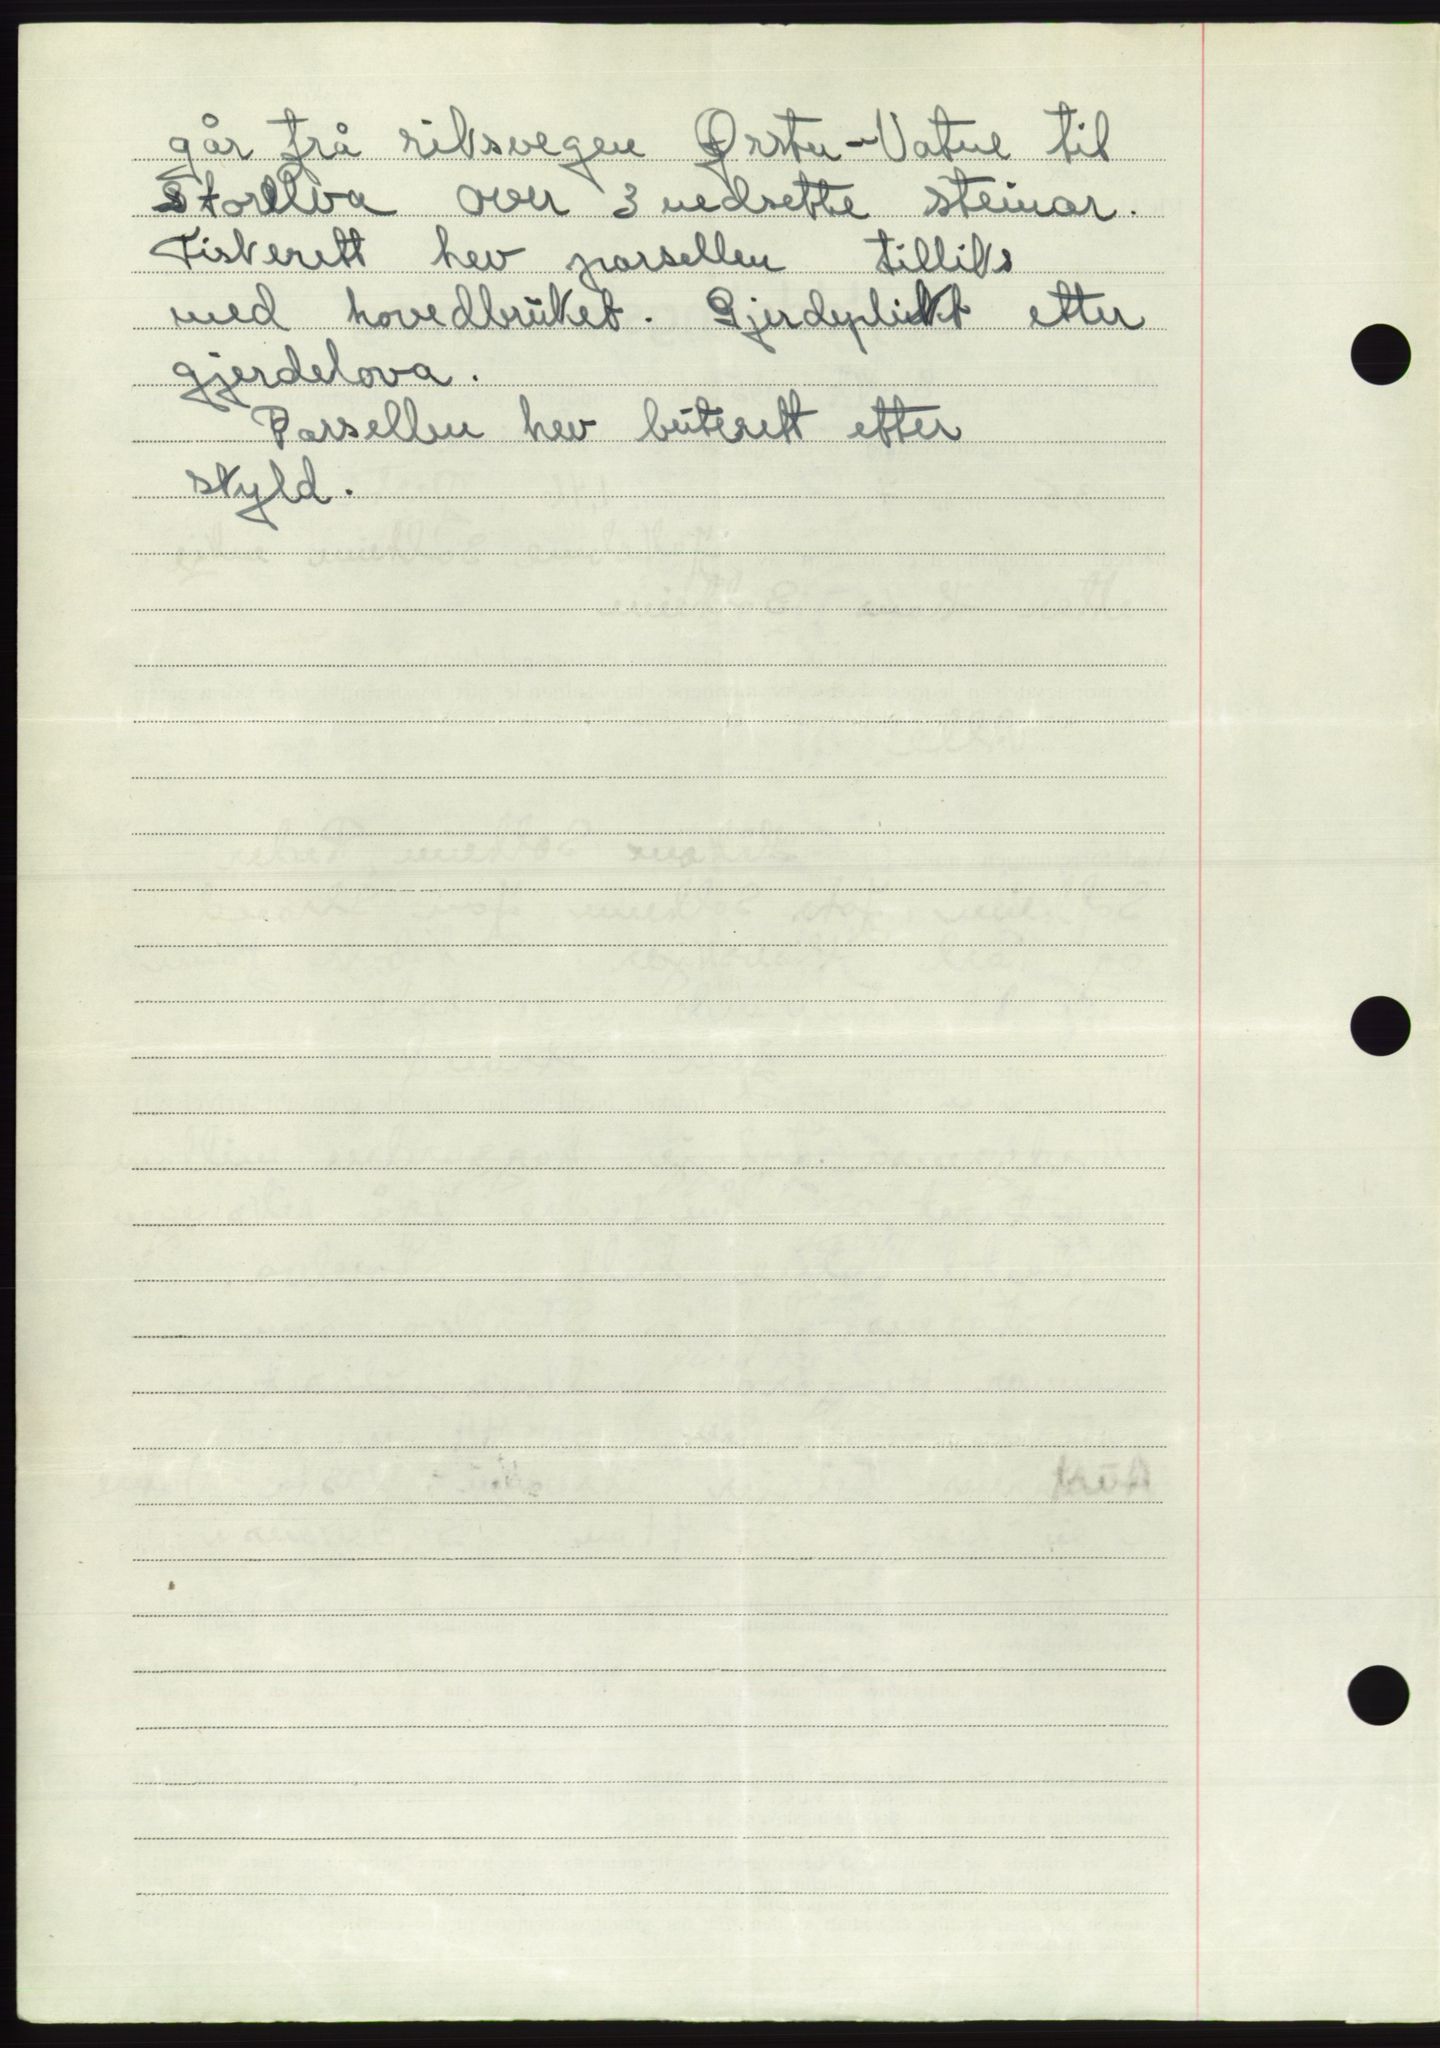 går frå riksvegen Ørsta-Vatne til
Storelva over 3 nedsette steinar.
Fiskerett hev parsellen tilliks
med hovedbruket. Gjerdeplikt etter
gjerdelova.
Parsellen hev beiterett etter
skyld.